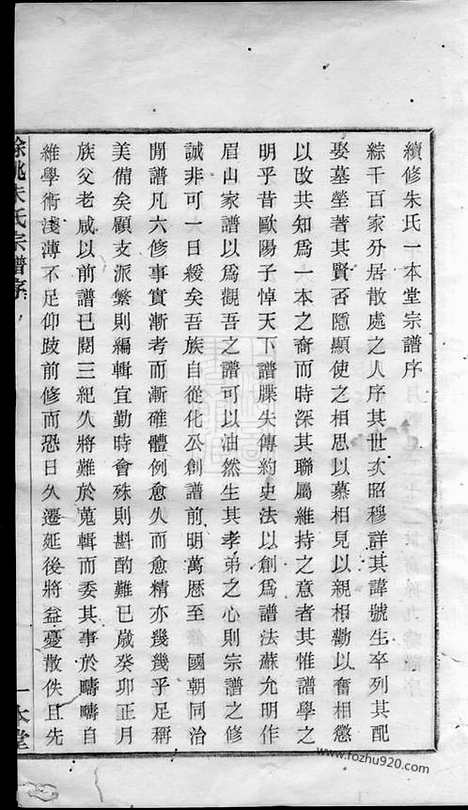 續修朱氏一本堂宗譜序
綜千百家分居散處之人序其世次昭穆詳其諱號生卒列其配
娶墓塋著其賢否隱顯使之相思以慕相見以親相勸以奮相懲
以改共知爲一本之裔而時深其聯屬維持之意者其惟譜學之
明乎昔歐陽子悼天下譜牒失傳約史法以創爲譜法蘇允明作
眉山家譜以爲觀吾之譜可以油然生其孝弟之心則宗譜之修
誠非可一日緩矣吾族自從化公創譜前明萬厯至 國朝同治
閒譜凡六修事實漸考而漸確體例愈久而愈精亦幾幾乎足稱
美備矣顧支派繁則編輯宜勤時會殊則斟酌難已歲癸卯正月
族父老咸以前譜已閱三紀久將難於蒐輯而委其事於疇疇自
維學術淺薄不足仰歧前修而恐日久遷延後將益憂散佚且先
餘姚朱氏宗譜序
一本堂
www.fozhu920.com